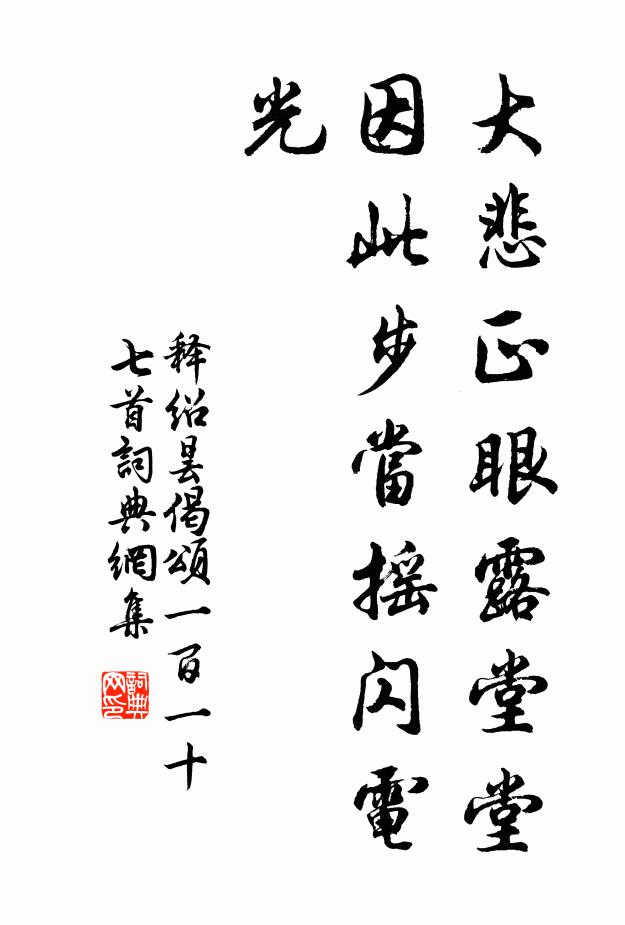 大悲正眼露堂堂
因此步當摇闪電
光
释绍昙偈頌一百一十
七首詞典網集
詞典网印